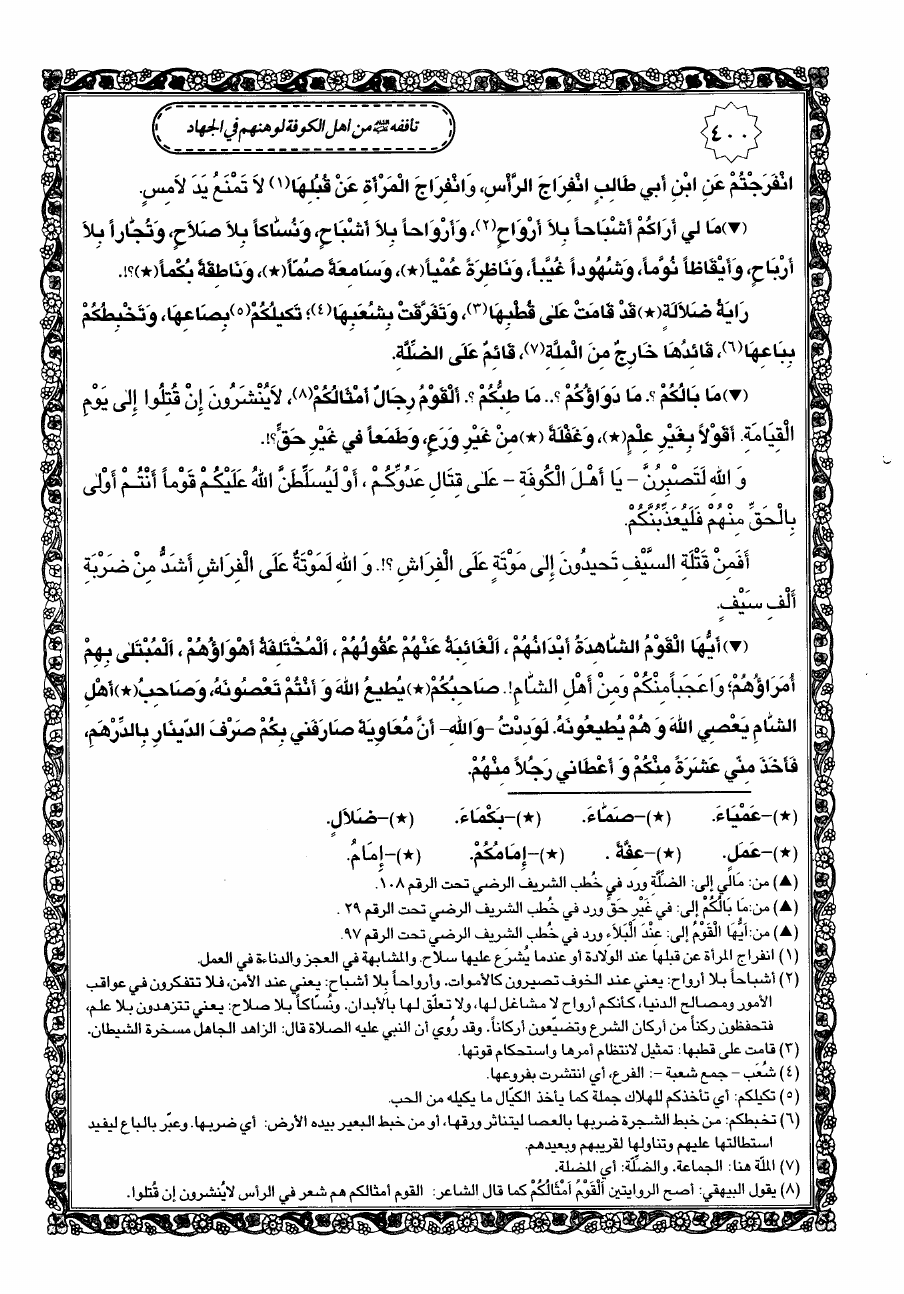 ٤٠٠
تأففه عليه السلام من أهل الكوفة لوهنهم في الجهاد
انْفَرَجْتُمْ عَنِ ابْنِ أَبي طَالِبٍ انْفِرَاجَ الرَّأْسِ، وَانْفِرَاجَ الْمَرْأَةِ عَنْ قُبُلِهَا(١) لاَ تَمْنَعُ يَدَ لاَمِسٍ.
(▼)مَا لي أَرَاكُمْ أَشْبَاحاً بِلاَ أَرْوَاحٍ(٢)، وَأَرْوَاحاً بِلاَ أَشْبَاحٍ، وَنُسَّاكاً بِلاَ صَلاَحٍ، وَتُجَّاراً بِلاَ
أَرْبَاحٍ، وَأَيْقَاظاً نُوَّماً، وَشُهُوداً غُيَّباً، وَنَاظِرَةً عُمْياً(★)، وَسَامِعَةً صُمّاً(★)، وَنَاطِقَةً بُكْماً(★)؟!.
رَايَةُ ضَلاَلَةٍ(★) قَدْ قَامَتْ عَلىٰ قُطْبِهَا(٣)، وَتَفَرَّقَتْ بِشُعَبِهَا(٤)؛ تَكيلُكُمْ(٥) بِصَاعِهَا، وَتَخْبِطُكُمْ
بِبَاعِهَا(٦)، قَائِدُهَا خَارِجٌ مِنَ الْمِلَّةِ(٧)، قَائِمٌ عَلَى الضِّلَّةِ.
(▼)مَا بَالُكُمْ؟. مَا دَوَاؤُكُمْ؟.. مَا طِبُّكُمْ؟. أَلْقَوْمُ رِجَالٌ أَمْثَالُكُمْ(٨)، لاَيُنْشَرُونَ إِنْ قُتِلُوا إِلىٰ يَوْمِ
الْقِيَامَةِ. أَقَوْلاً بِغَيْرِ عِلْمٍ(★)، وَغَفْلَةً (★)مِنْ غَيْرِ وَرَعٍ، وَطَمَعاً في غَيْرِ حَقٍّ؟!.
وَ اللهِ لَتَصْبِرُنَّ – يَا أَهْلَ الْكُوفَةِ – عَلىٰ قِتَالِ عَدُوِّكُمْ ، أَوْ لَيُسَلِّطَنَّ اللهُ عَلَيْكُمْ قَوْماً أَنْتُمْ أَوْلىٰ
بِالْحَقِّ مِنْهُمْ فَلَيُعَذِّبُنَّكُمْ.
أَفَمِنْ قَتْلَةِ السَّيْفِ تَحيدُونَ إِلىٰ مَوْتَةٍ عَلَى الْفِرَاشِ ؟!. وَ اللهِ لَمَوْتَةٌ عَلَى الْفِرَاشِ أَشَدُّ مِنْ ضَرْبَةِ
أَلْفِ سَيْفٍ.
(▼)أَيُّهَا الْقَوْمُ الشَّاهِدَةُ أَبْدَانُهُمْ ، أَلْغَائِبَةُ عَنْهُمْ عُقُولُهُمْ ، أَلْمُخْتَلِفَةُ أَهْوَاؤُهُمْ ، أَلْمُبْتَلىٰ بِهِمْ
أُمَرَاؤُهُمْ؛ وَاعَجَباً مِنْكُمْ وَمِنْ أَهْلِ الشَّامِ!. صَاحِبُكُمْ(★) يُطيعُ اللهَ وَ أَنْتُمْ تَعْصُونَهُ، وَصَاحِبُ(★) أَهْلِ
الشَّامِ يَعْصِي اللهَ وَ هُمْ يُطيعُونَهُ. لَوَدِدْتُ –وَاللهِ– أَنَّ مُعَاوِيَةَ صَارَفَني بِكُمْ صَرْفَ الدّينَارِ بِالدِّرْهَمِ،
فَأَخَذَ مِنّي عَشَرَةً مِنْكُمْ وَ أَعْطَاني رَجُلاً مِنْهُمْ.
(★)–عَمْيَاءَ. (★)–صَمَّاءَ. (★)–بَكْمَاءَ. (★)–ضَلاَلٍ.
(★)–عَمَلٍ. (★)–عِفَّةً . (★)–إِمَامُكُمْ. (★)–إِمَامُ.
(▲) من: مَالي إلى: الضِلَّة ورد في خُطب الشريف الرضي تحت الرقم ١٠٨.
(▲) من:مَا بَالُكُمْ إلى: في غَيْرِ حَقٍّ ورد في خُطب الشريف الرضي تحت الرقم ٢٩ .
(▲) من:أَيُّهَا الْقَوْمُ إلى: عِنْدَ الْبَلاَءِ ورد في خُطب الشريف الرضي تحت الرقم ٩٧.
(١) انفراج المرأة عن قبلها عند الولادة أو عندما يُشرَع عليها سلاح. والمشابهة في العجز والدناءة في العمل.
(٢) أشباحاً بلا أرواح: يعني عند الخوف تصيرون كالأموات. وأرواحاً بلا أشباح: يعني عند الأمن، فـلا تتفكرون في عواقب
الأمور ومصالح الدنيا، كأنكم أرواح لا مشاغل لـها، ولا تعلّق لـها بالأبدان. ونُسّاكاً بـلا صلاح: يعني تتزهدون بلا علم،
فتحفظون ركناً من أركان الشرع وتضيّعون أركاناً. وقد رُوي أن النبي عليه الصلاة قال: الزاهد الجاهل مسخرة الشيطان.
(٣) قامت على قطبها: تمثيل لانتظام أمرها واستحكام قوتها.
(٤) شُعَب – جمع شعبة –: الفرع، أي انتشرت بفروعها.
(٥) تكيلكم: أي تأخذكم للهلاك جملة كما يأخذ الكيّال ما يكيله من الحب.
(٦) تخبطكم: من خبط الشجرة ضربها بالعصا ليتناثر ورقها، أو من خبط البعير بيده الأرض: أي ضربها. وعبّر بالباع ليفيد
استطالتها عليهم وتناولها لقريبهم وبعيدهم.
(٧) الملّة هنا: الجماعة. والضِلّة: أي المضلة.
(٨) يقول البيهقي: أصح الروايتين أَلْقَوْمُ أَمْثَالُكُمْ كما قال الشاعر: القوم أمثالكم هم شعر في الرأس لايُنشرون إن قُتلوا.